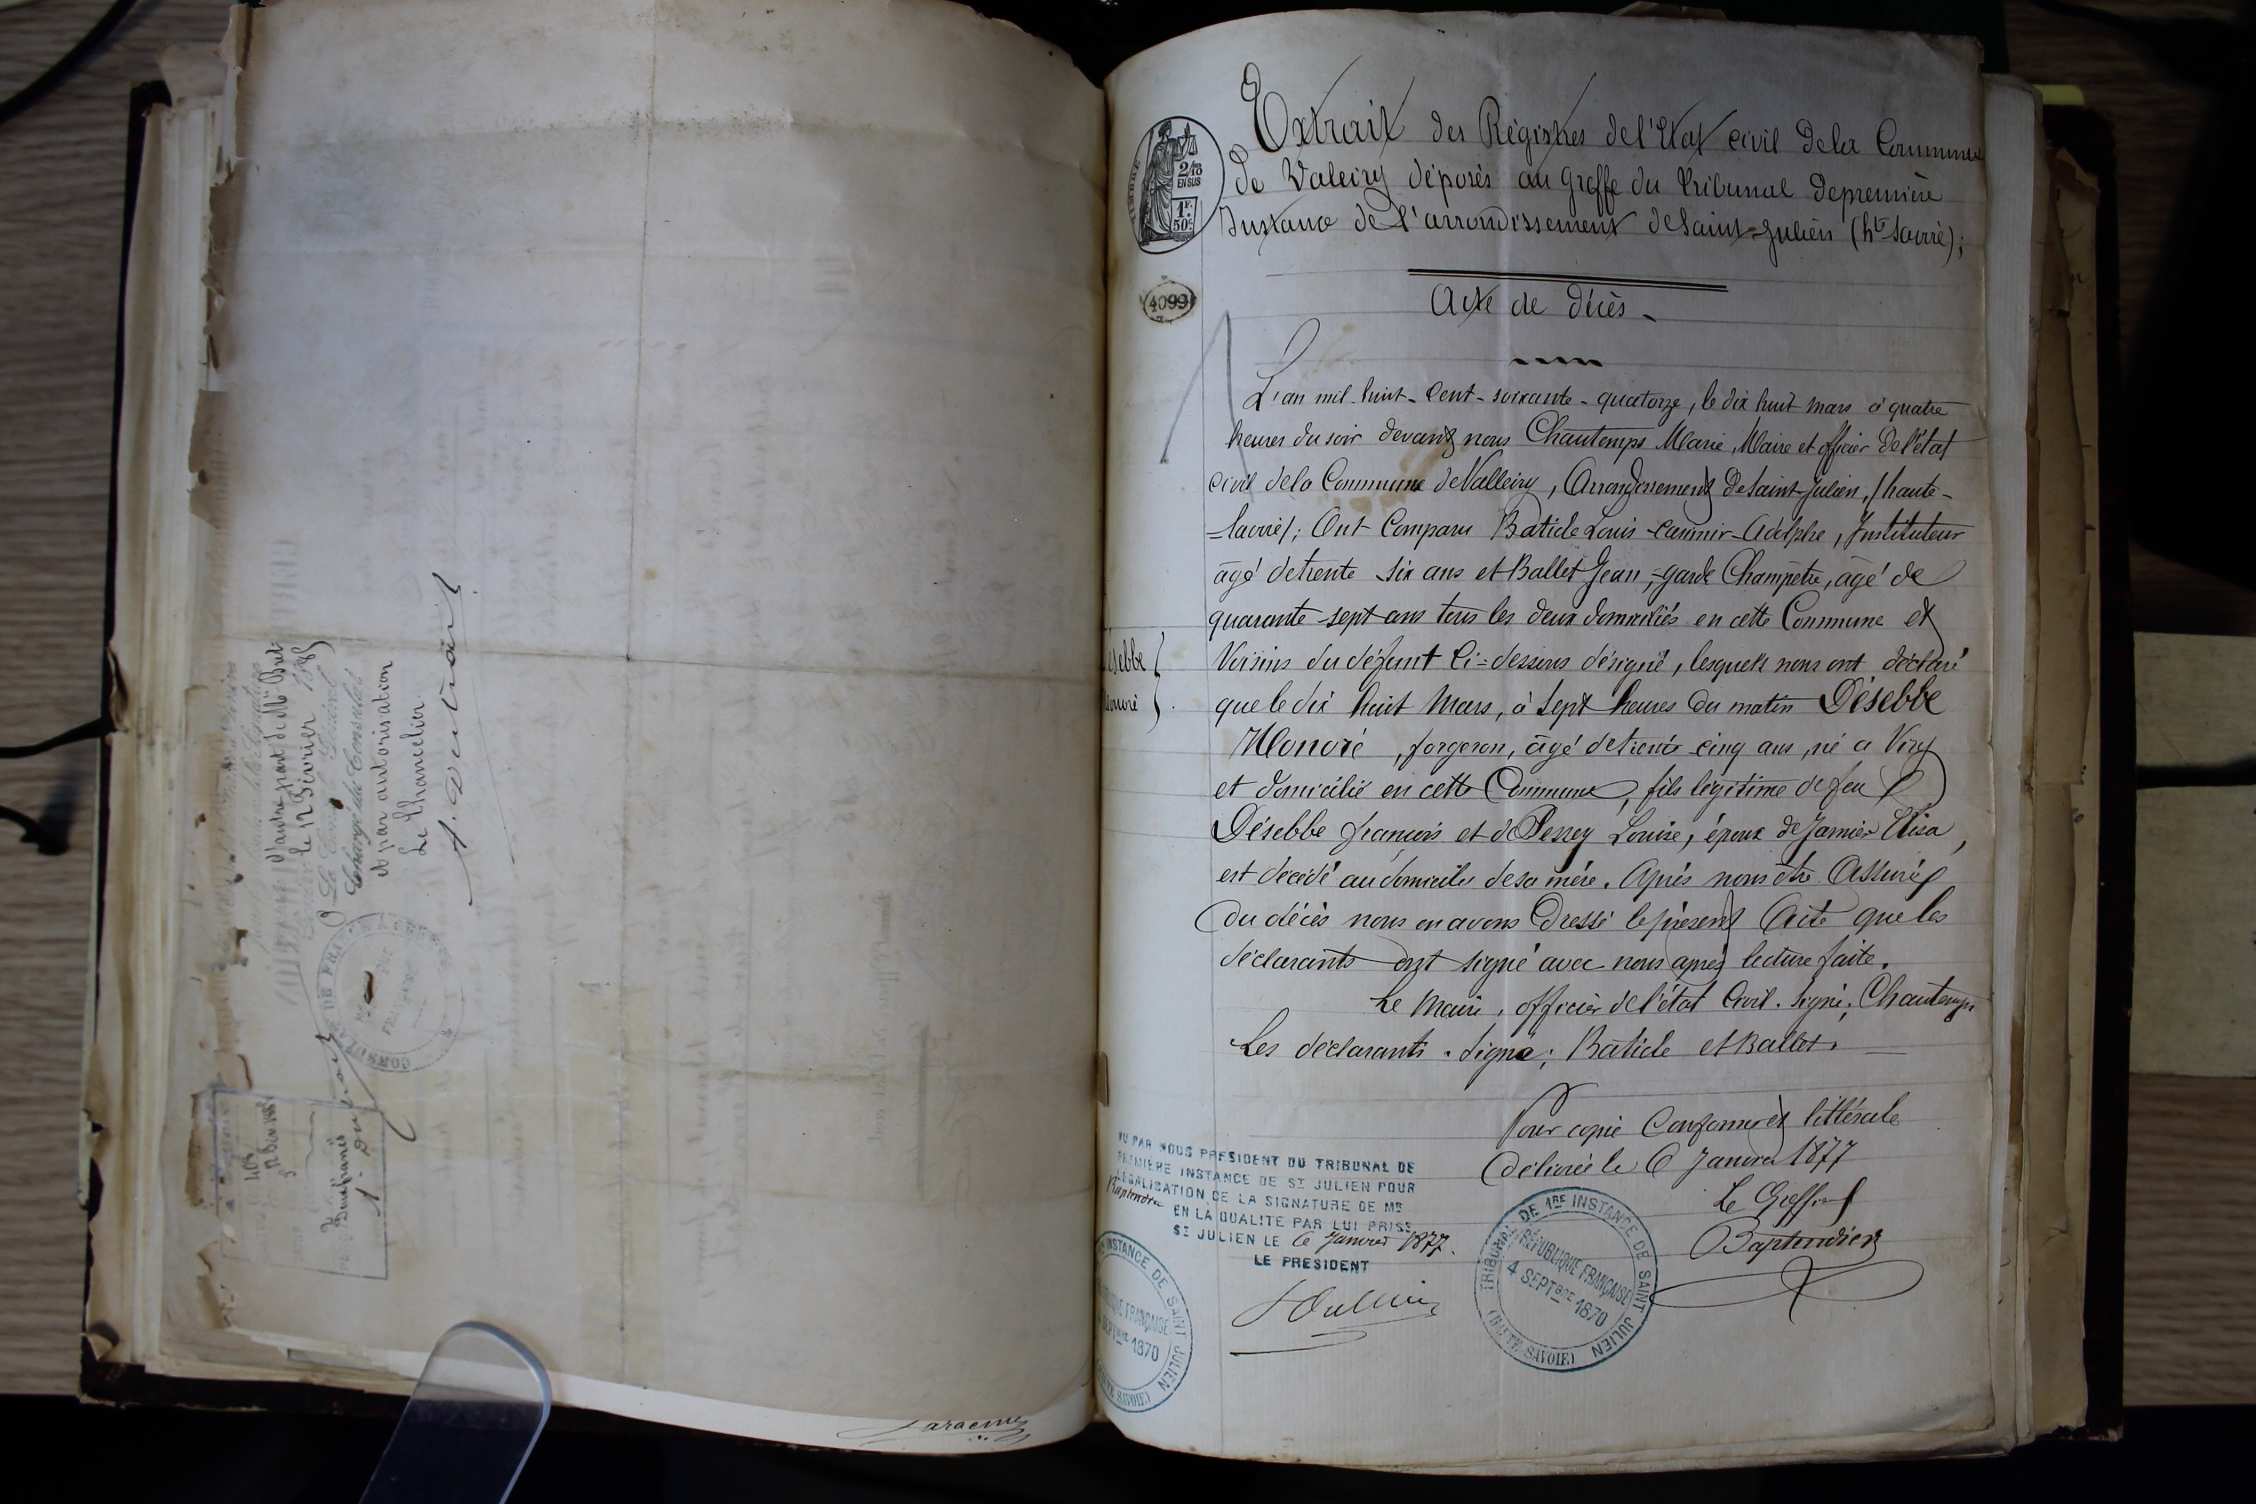 d'autre part de Mr Dul
le 12 Février 1885
Le Consul Général
Chargé du Consulat
et par autorisation
Le Chancelier
A. Dutrait
Saracino
TIMBRE
2/10
EN SUS
1F.
50C.
4099
Extrait des Régistres de l'Etat civil de la Commune
de Valeiry déposés au Greffe du Tribunal de première
Instance de l'arrondissement de Saint-Julien (hte Savoie);
Acte de décès
L'an mil-huit-Cent-soixante-quatorze, le dix huit mars à quatre
heures du soir devant nous Chautemps Marie, Maire et officier de l'état
civil de la Commune de Valleiry, Arrondissement de Saint-Julien, (haute-
=Savoie); Ont Comparu Batide Louis-Casimir-Adolphe, Instituteur
âgé de trente six ans et Ballet Jean, garde Champêtre, âgé de
quarante-sept ans tous les deux domiciliés en cette Commune et
Voisins du défunt Ci-dessous désigné, lesquels nous ont déclaré
Désebbe
que le dix huit Mars, à Sept heures du matin Désebbe
Honoré
Honoré, forgeron, âgé de trente cinq ans, né à Viry
et domicilié en cette Commune, fils légitime de feu
Désebbe françois et de Pessey Louise, époux de Jamier Elisa,
est décédé au domicile de sa mère. Après nous être Assuré
du décès nous en avons Dressé le présent Acte que les
déclarants ont signé avec nous après lecture faite.
Le Maire, officier de l'état Civil. Signé; Chautemps
Les déclarants. Signé; Batide et Ballet.
Pour copie Conforme et littérale
délivrée le 6 Janvier 1877
Le Greffier
Baptendier
VU PAR NOUS PRESIDENT DU TRIBUNAL DE
PREMIÈRE INSTANCE DE ST JULIEN POUR
LEGALISATION DE LA SIGNATURE DE ME
Baptendier
EN LA QUALITE PAR LUI PRISE
ST JULIEN LE 6 Janvier 1877.
LE PRESIDENT
TRIBUNAL DE 1RE INSTANCE DE SAINT JULIEN
RÉPUBLIQUE FRANÇAISE
4 SEPTBRE 1870
(HAUTE SAVOIE)
INSTANCE DE SAINT JULIEN
RÉPUBLIQUE FRANÇAISE
SEPTBRE 1870
SAVOIE)